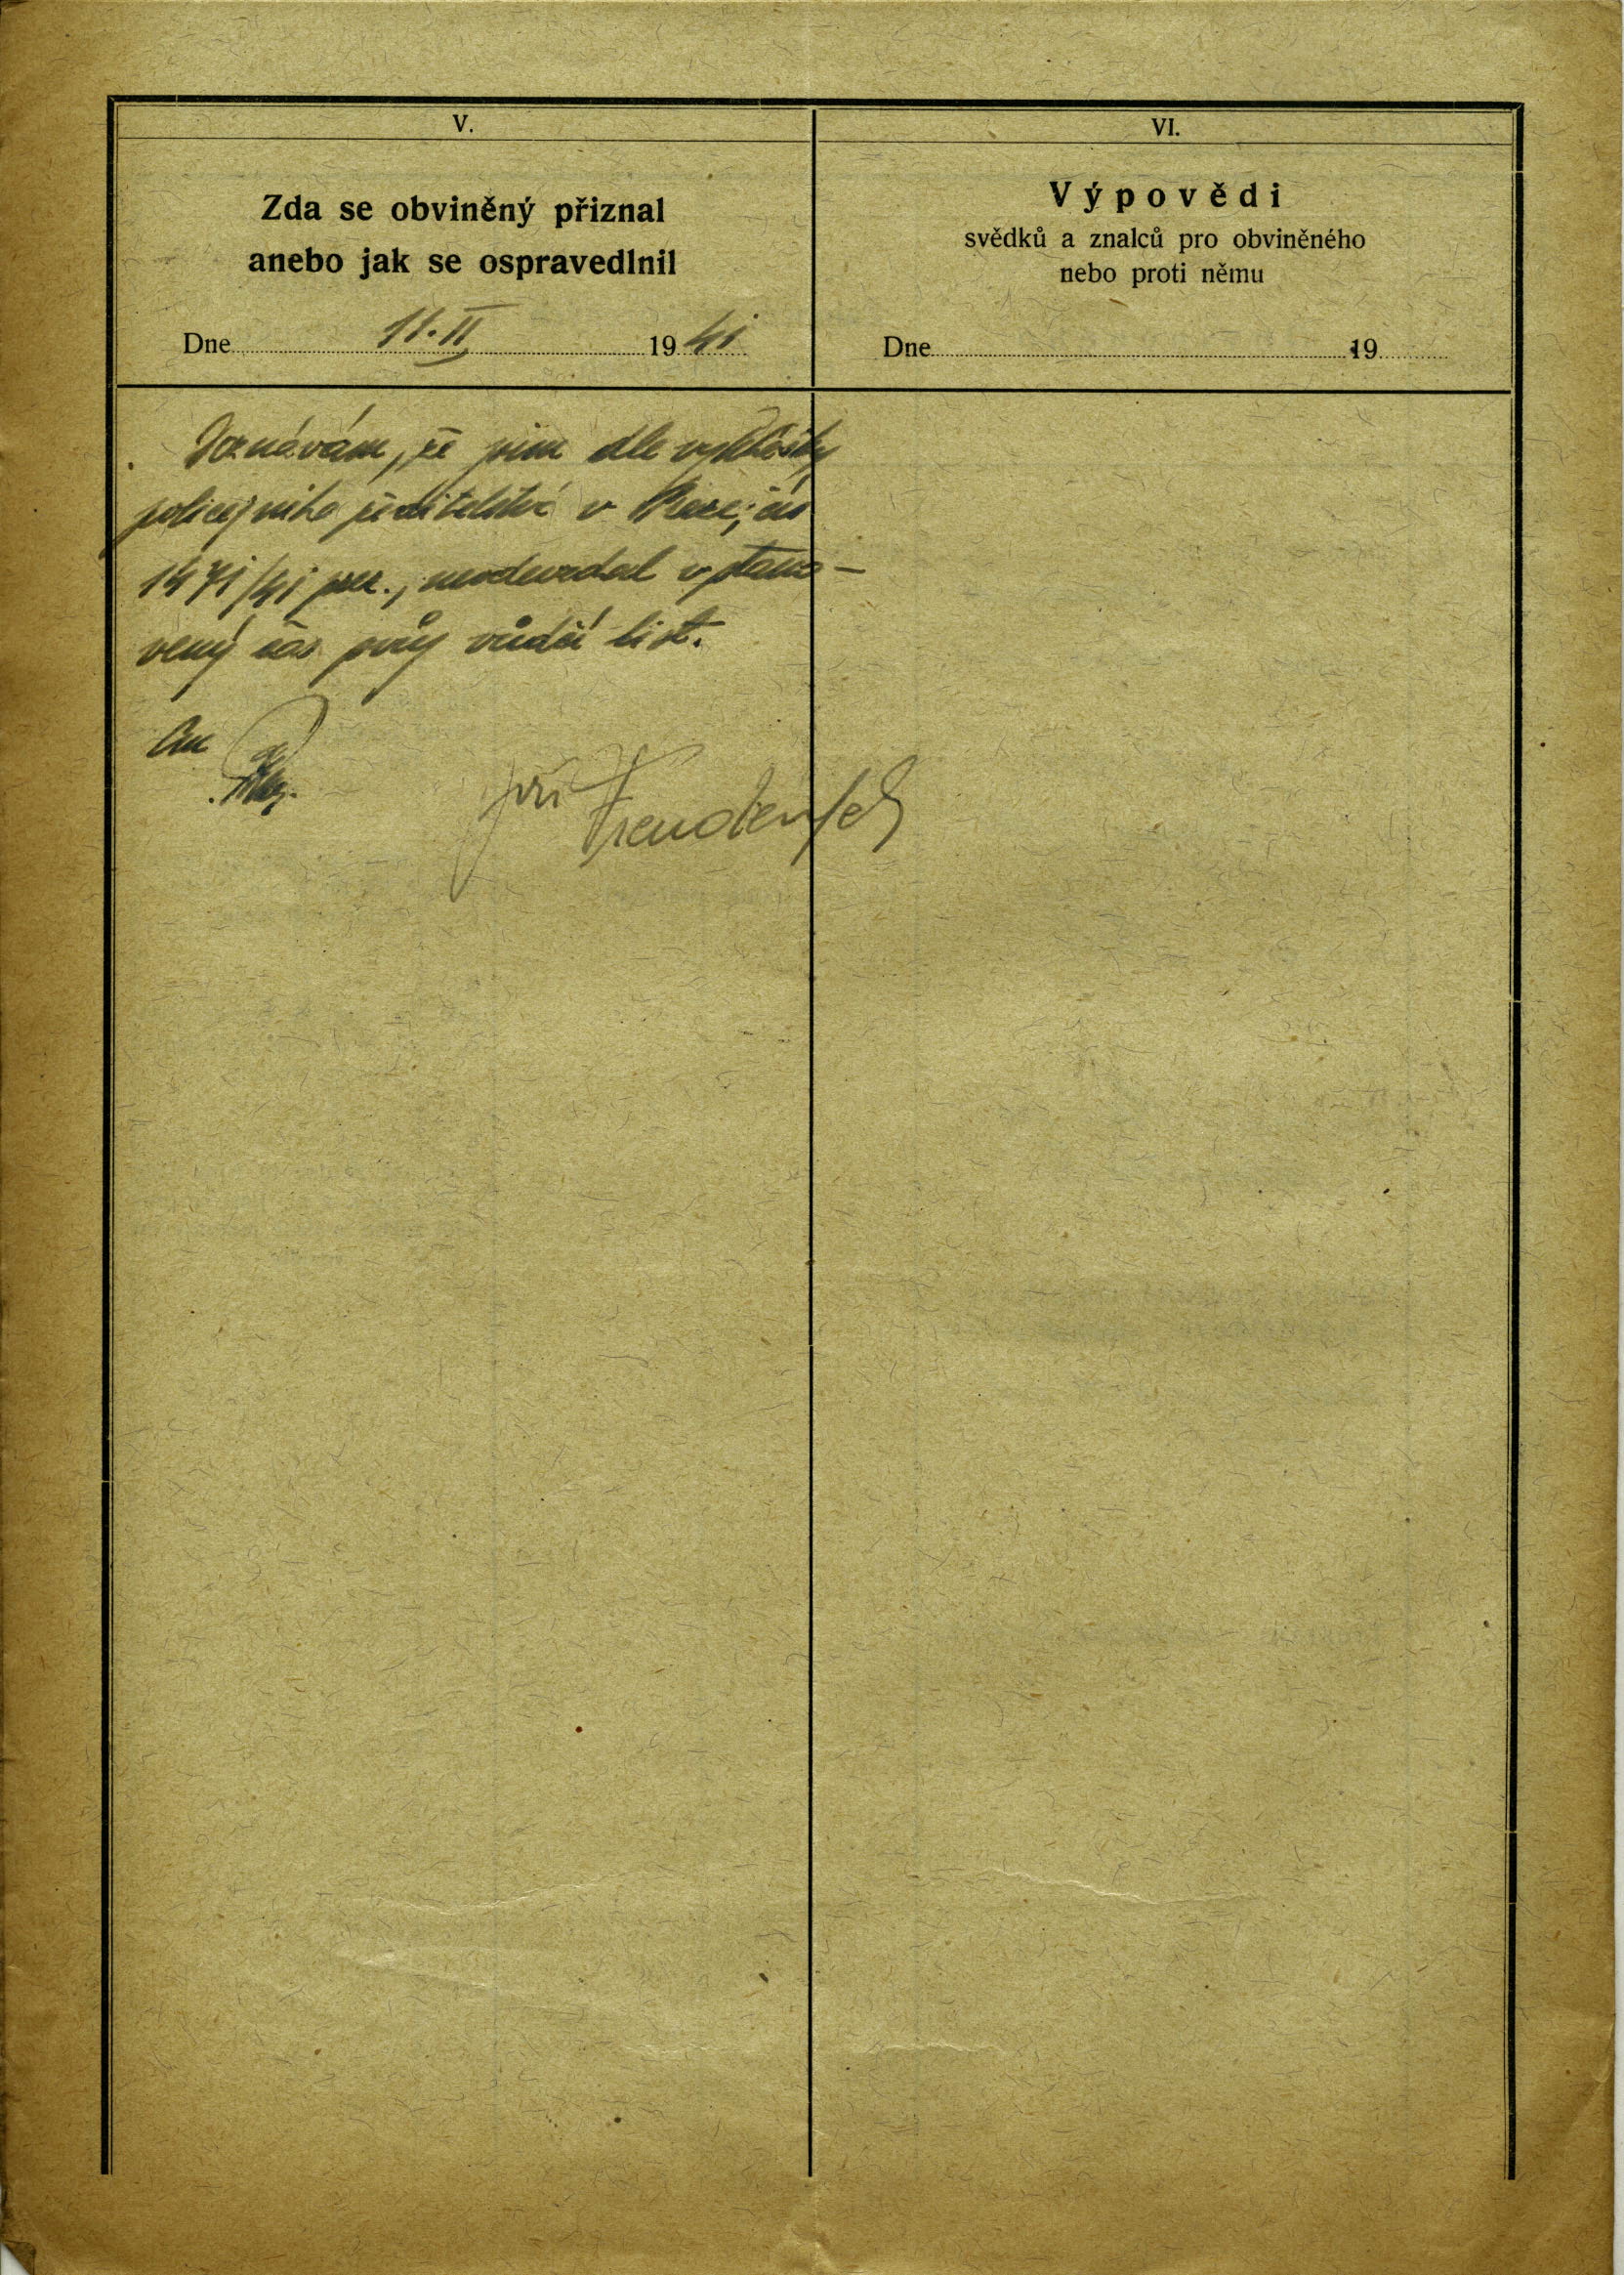 V.
Zda se obviněný přiznal
anebo jak se ospravedlnil
Dne 11.II. 1941
VI.
Výpovědi
svědků a znalců pro obviněného
nebo proti němu
Dne 19
Doznávám, že jsem dle vyhlášky
policejního ředitelství v Praze, čís
1471/41 prez., neodevzdal v stano-
vený čas svůj řidičí list.
Jiří